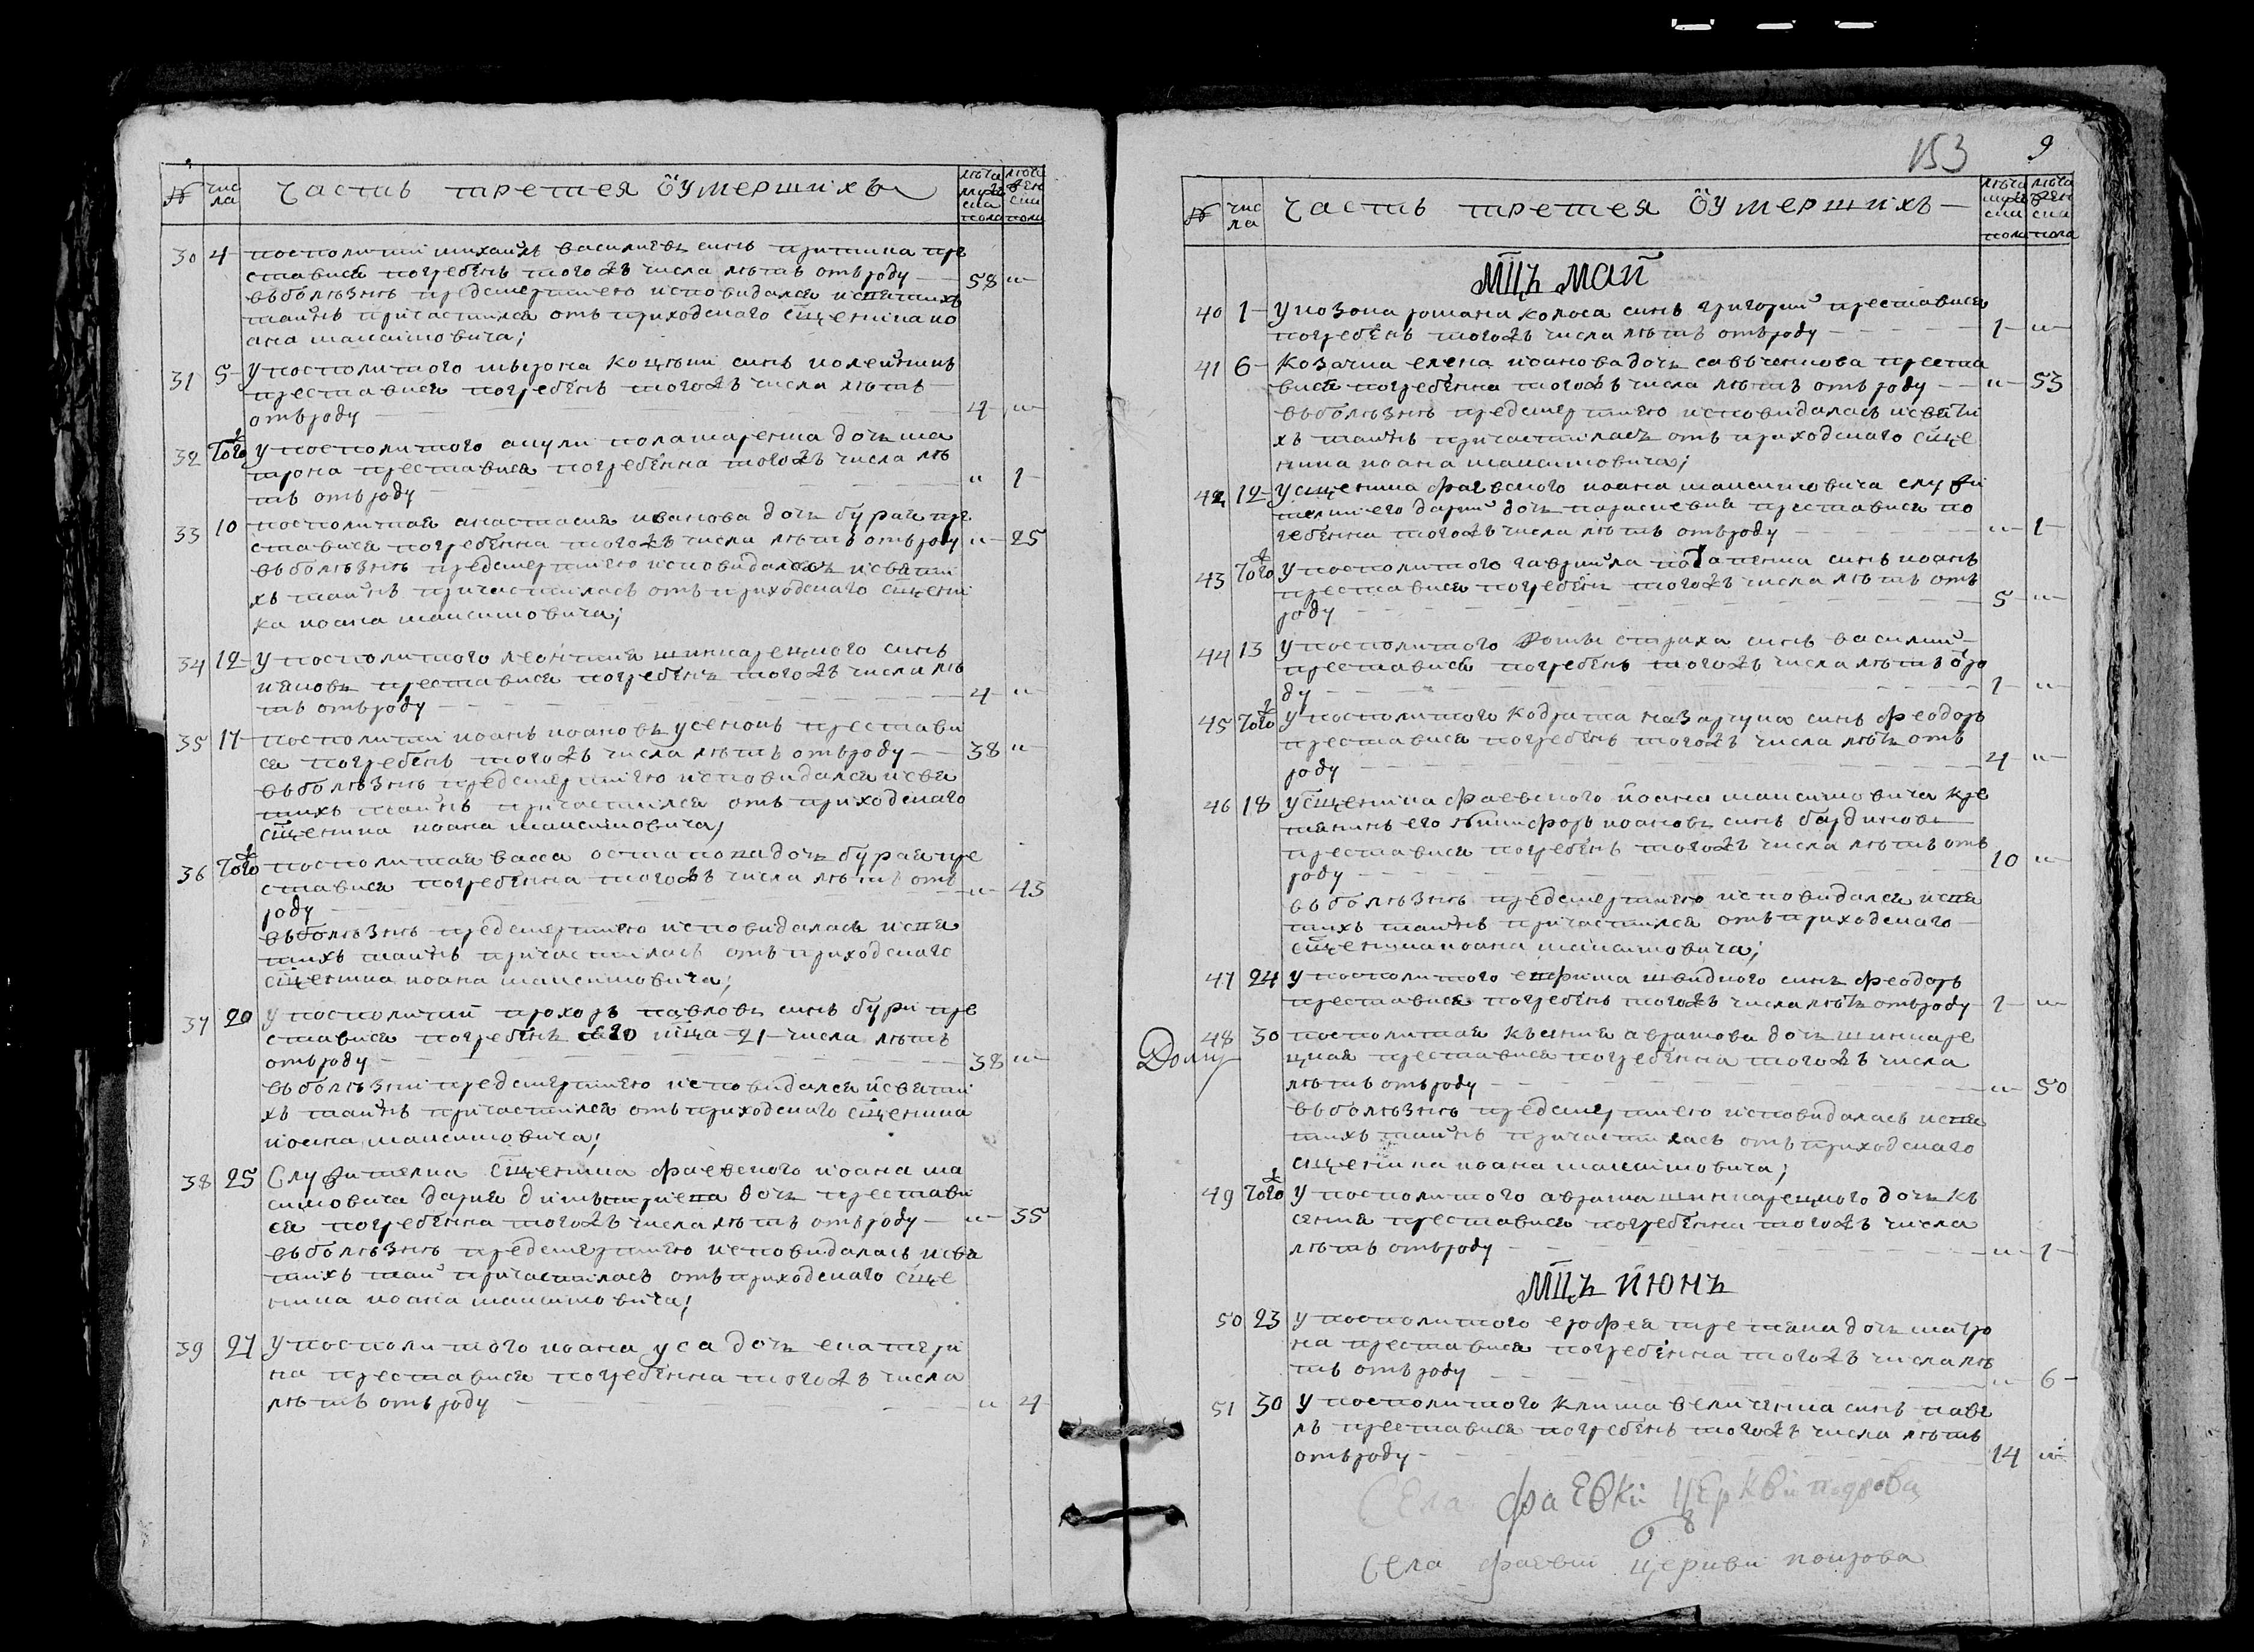 № чис ла Часть третея оумершихъ лѣта мужеска пола лѣта женска пола
30 4 посполитий михаилъ василиевъ синъ притика пре
стависа погребенъ того жъ числа лѣтъ отъ роду 58 "
въ болѣзнѣ предсмертнею исповидался исвятихъ
таинъ причастился отъ приходского сщенника ио
ана максимовича;
31 5 У посполитого мирона коцюпи синъ
преставися погребенъ того жъ числа лѣтъ
отъ роду 4 "
32 Того ж У посполитого дочь ма
трона преставися погребенна того жъ числа лѣ
тъ отъ роду " 1
33 10 посполитая анастасия иванова дочь бурая пре
стависа погребенна того жъ числа лѣтъ отъ роду " 25
въ болѣзнѣ предсмертнею исповидалась исвяти
хъ таинъ причастилась отъ приходского сщенни
ка иоана максимовича;
34 12 У посполитого леонтия шинкаренкого синъ
ияковъ преставися погребенъ того жъ числа лѣ
тъ отъ роду 4 "
35 17 посполитий иоанъ иоановъ усенокъ престави
ся погребенъ того жъ числа лѣтъ отъ роду 38 "
въ болѣзнѣ предсмертнею исповидался исвя
тихъ таинъ причастился отъ приходского
сщенника иоана максимовича;
36 Того ж посполитая васса остапова дочь бурая пре
стависа погребенна того жъ числа лѣтъ отъ " 43
роду
въ болѣзнѣ предсмертнею исповидалась исвя
тихъ таинъ причастилась отъ приходского
сщенника иоана максимовича;
37 20 У посполитий прохоръ павловъ синъ бурий пре
стависа погребенъ сего мца 21 числа лѣтъ
отъ роду 38 "
въ болѣзни предсмертнею исповидался исвяти
хъ таинъ причастился отъ приходского сщенника
иоана максимовича;
38 25 Служителка сщенника фаевского иоана ма
симовича дария димитриева дочь престави
ся погребенна того жъ числа лѣтъ отъ роду " 35
въ болѣзнѣ предсмертнею исповидалась исвя
тихъ таин причастилась отъ приходского сще
нника иоана максимовича;
39 27 У посполитого иоана уса дочь екатери
на преставися погребенна того жъ числа
лѣтъ отъ роду " 4
153 9
№ чис ла Часть третея оумершихъ лѣта мужска пола лѣта женска пола
мцъ май
40 1 У козака романа колоса синъ григорий преставися
погребенъ того жъ числа лѣтъ отъ роду 1 "
41 6 Козачка елена иоанова дочь савъченкова преста
вися погребенна того жъ числа лѣтъ отъ роду " 53
въ болѣзнѣ предсмертнею исповидалась исвяти
хъ таинъ причастилась отъ приходского сще
нника иоана максимовича;
42 12 У сщенника фаевского иоана максимовича служи
телки его дарии дочь параскевия преставися по
гебенна того жъ числа лѣтъ отъ роду " 1
43 Того ж У посполитого гавриила потапенка синъ иоанъ
преставися погребенъ того жъ числа лѣтъ отъ
роду 5 "
44 13 У посполитого страха синъ василий
преставися погребенъ того жъ числа лѣтъ о ро
ду 1 "
45 Того ж У посполитого кодрата назаруна синъ феодоръ
преставися погребенъ того жъ числа лѣтъ отъ
роду 4 "
46 18 У сщенника фаевского иоана максимовича кре
тянинъ его никифоръ иоановъ синъ бардиковъ
преставися погребенъ того жъ числа лѣтъ отъ
роду 10 "
въ болѣзнѣ предсмертнею исповидался исвя
тихъ таинъ причастился отъ приходского
сщенника иоана максимовича;
47 24 У посполитого ефрима швидкого синъ феодоръ
преставися погребенъ того жъ числа лѣтъ отъ роду 1 "
48 30 посполитая късения аврамова дочь шинкаре
нкая преставися погребенна того жъ числа
лѣтъ отъ роду " 50
въ болѣзнѣ предсмертнею исповидалась исвя
тихъ таинъ причастилась отъ приходского
сщенника иоана максимовича;
49 Того ж У посполитого аврама шинкаренкого дочь къ
сения преставися погребенна того жъ числа
лѣтъ отъ роду " 1
мцъ июнъ
50 23 У посполитого ерофея третяка дочь матро
на преставися погребенна того жъ числа лѣ
тъ отъ роду " 6
51 30 У посполитого клима величенка синъ паве
лъ преставися погребенъ того жъ числа лѣтъ
отъ роду 14 "
Села фаевки церкви покрова
Села фаевки церкви покрова